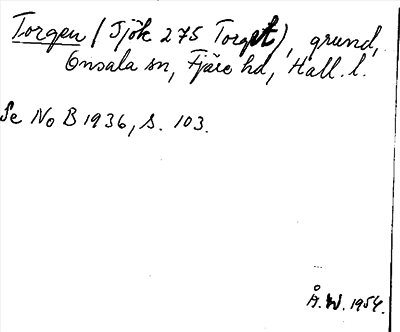 Torgen (Sjök 275 Torget), grund,
Onsala sn, Fjäre hd, Hall. l.
Se NoB 1936, s. 103.
Å. W. 1954.